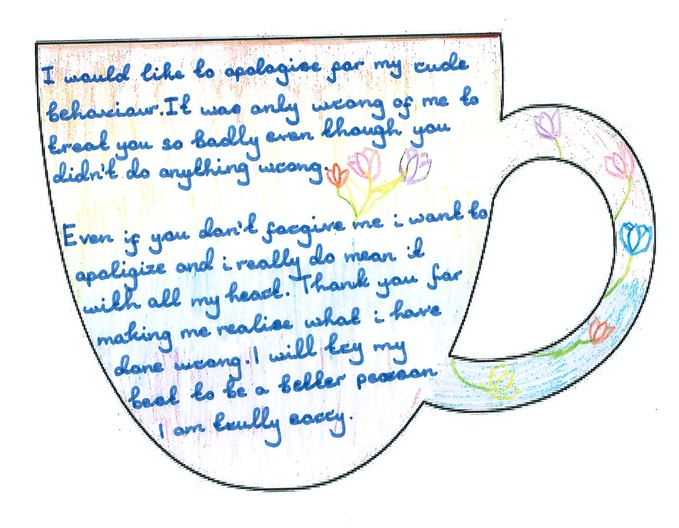 I would like to apologise for my rude
behaviour.It was only wrong of me to
treat you so badly even though you
didn't do anything wrong.
Even if you don't forgive me i want to
apoligize and i really do mean it
with all my heart. Thank you for
making me realise what i have
done wrong. I will try my
best to be a better person
I am trully sorry.